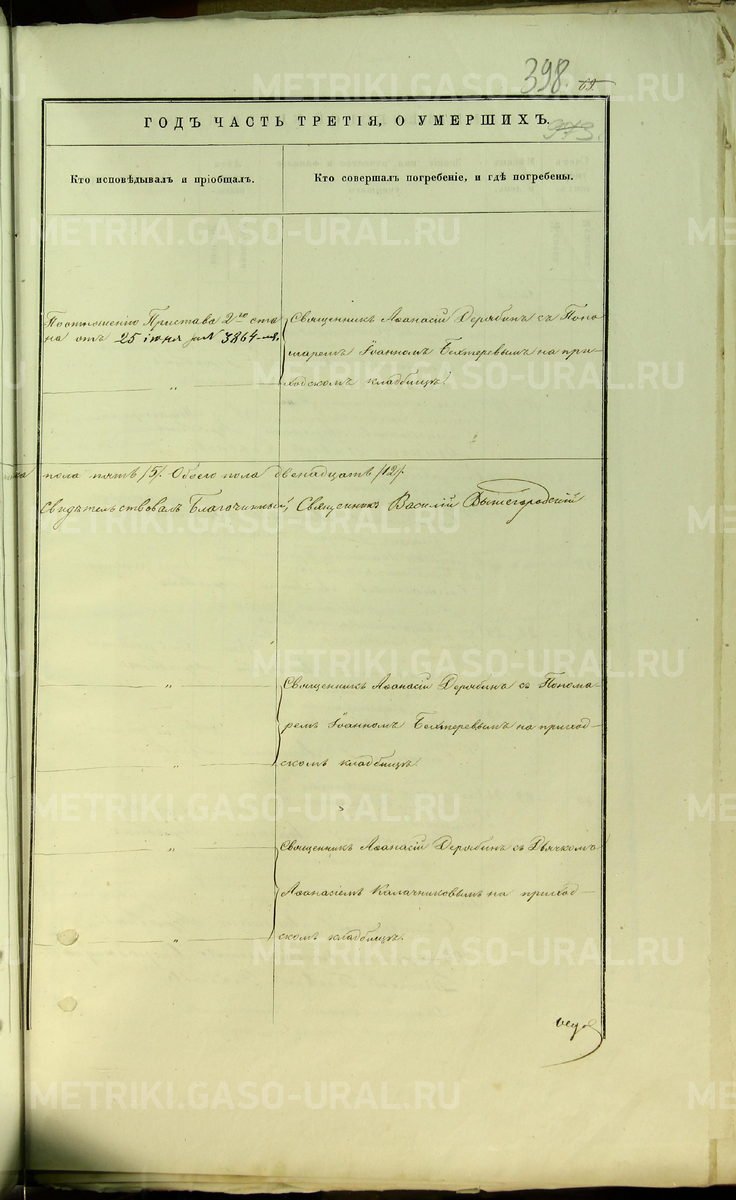 398.
69.
973.
ГОДЪ ЧАСТЬ ТРЕТІЯ, О УМЕРШИХЪ.
Кто исповѣдывалъ и пріобщалъ.
Кто совершалъ погребеніе, и гдѣ погребены.
По отношенію Пристава 2го ста
на отъ 25 іюня за № 3864-мъ.
"
Священникъ Аѳанасій Дерябинъ съ Поно
маремъ Іоанномъ Бехтеревымъ на при-
ходскомъ кладбищѣ.
пола пять /5/. Обоего пола двенадцать /12/.
Свидѣтельствовалъ Благочинный, Священникъ Василій Вышегородскій
"
"
Священникъ Аѳанасій Дерябинъ съ Понома-
ремъ Іоанномъ Бехтеревымъ на приход-
скомъ кладбищѣ.
"
"
Священникъ Аѳанасій Дерябинъ съ Дьячкомъ
Аѳанасіемъ Калачниковымъ на приход-
скомъ кладбищѣ.
METRIKI.GASO-URAL.RU